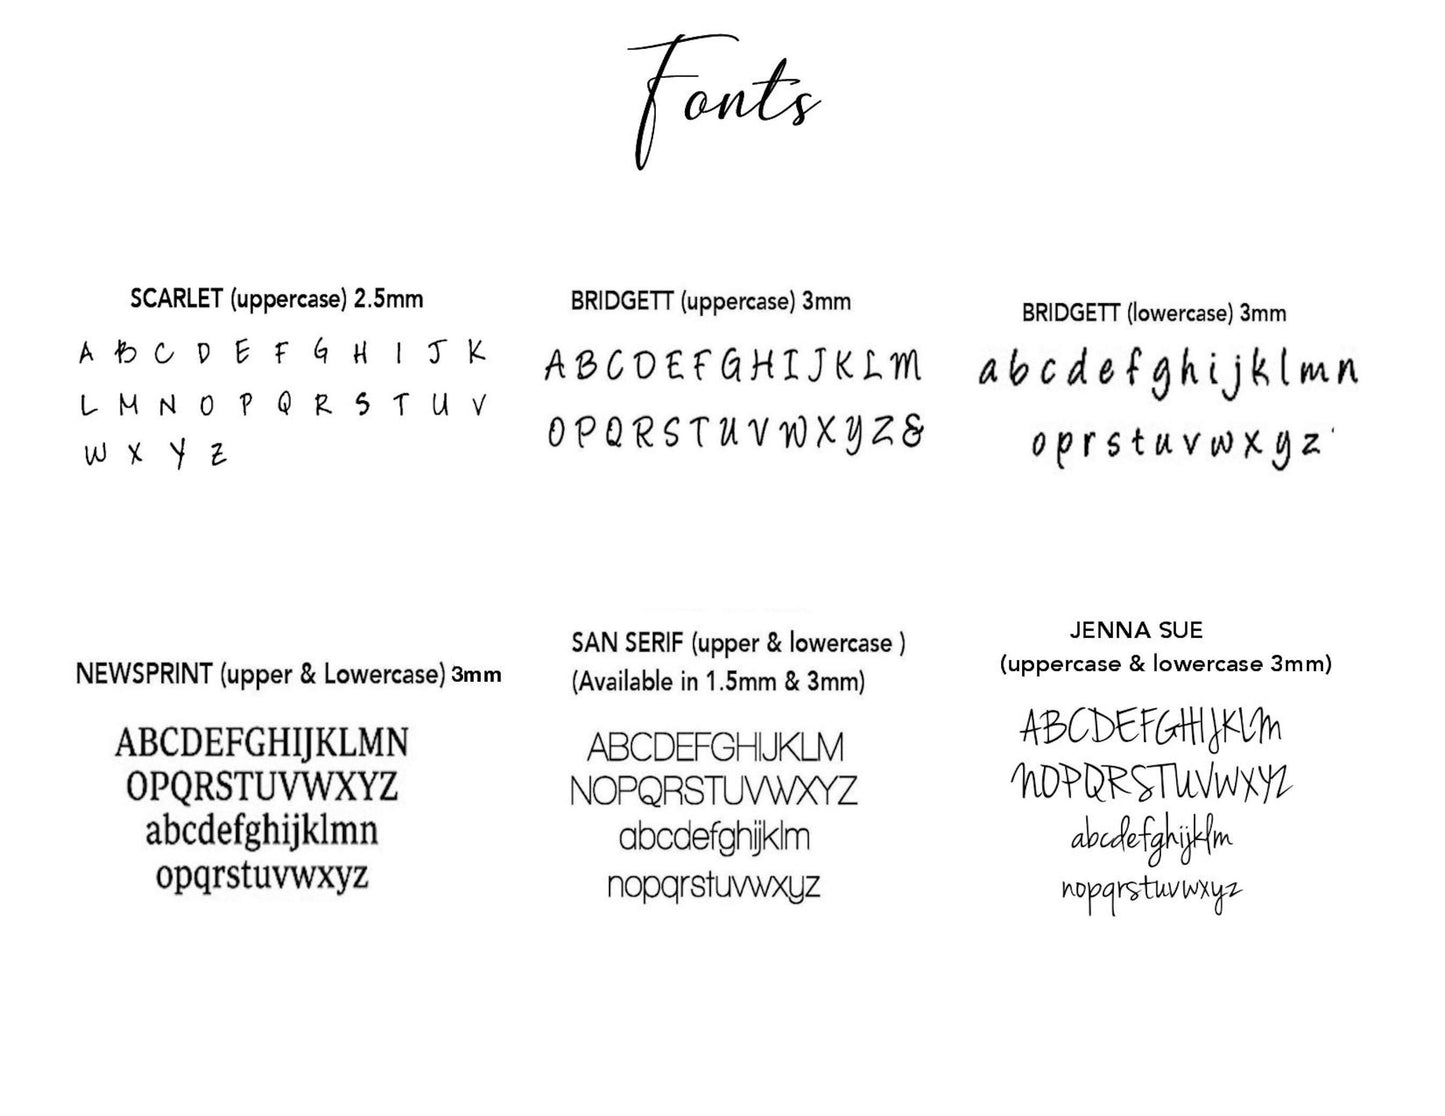 Fonts
SCARLET (uppercase) 2.5mm
A B C D E F G H I J K
L M N O P Q R S T U V
W X Y Z
BRIDGETT (uppercase) 3mm
A B C D E F G H I J K L M
O P Q R S T U V W X Y Z &
BRIDGETT (lowercase) 3mm
a b c d e f g h i j k l m n
o p r s t u v w x y z '
NEWSPRINT (upper & Lowercase) 3mm
ABCDEFGHIJKLMN
OPQRSTUVWXYZ
abcdefghijklmn
opqrstuvwxyz
SAN SERIF (upper & lowercase )
(Available in 1.5mm & 3mm)
ABCDEFGHIJKLM
NOPQRSTUVWXYZ
abcdefghijklm
nopqrstuvwxyz
JENNA SUE
(uppercase & lowercase 3mm)
ABCDEFGHIJKLM
NOPQRSTUVWXYZ
abcdefghijklm
nopqrstuvwxyz